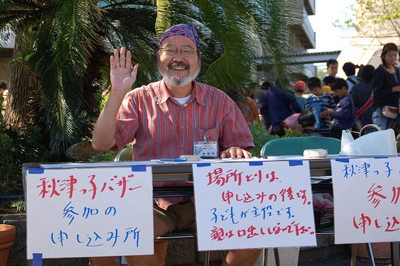 秋津っ子バザー
参加の
申し込み所
場所とりは
申し込みの後です。
子どもが主役です。
親は口出し一言です。
秋津っ子
参加
申し込